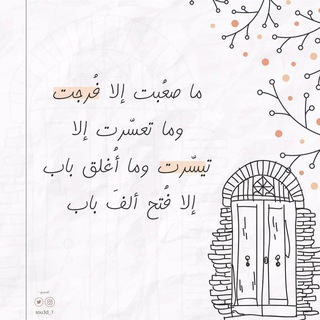 ما صعُبت إلا فُرجت
وما تعسّرت إلا
تيسّرت وما أُغلق باب
إلا فُتح ألفَ باب
sou3d_1